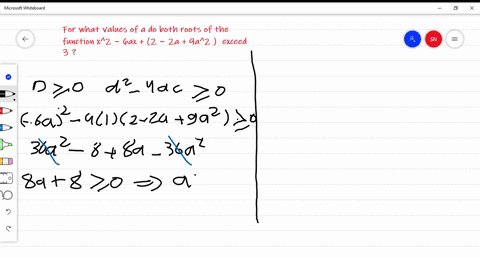 Microsoft Whiteboard
For what values of a do both roots of the
function x^2 - 6ax + (2 - 2a + 9a^2 ) exceed
3 ?
SN
D ≥ 0 d² - 4ac ≥ 0
(-6a)² - 4(1)(2-2a + 9a²) ≥ 0
36a² - 8 + 8a - 36a²
8a + 8 ≥ 0 ⇒ a